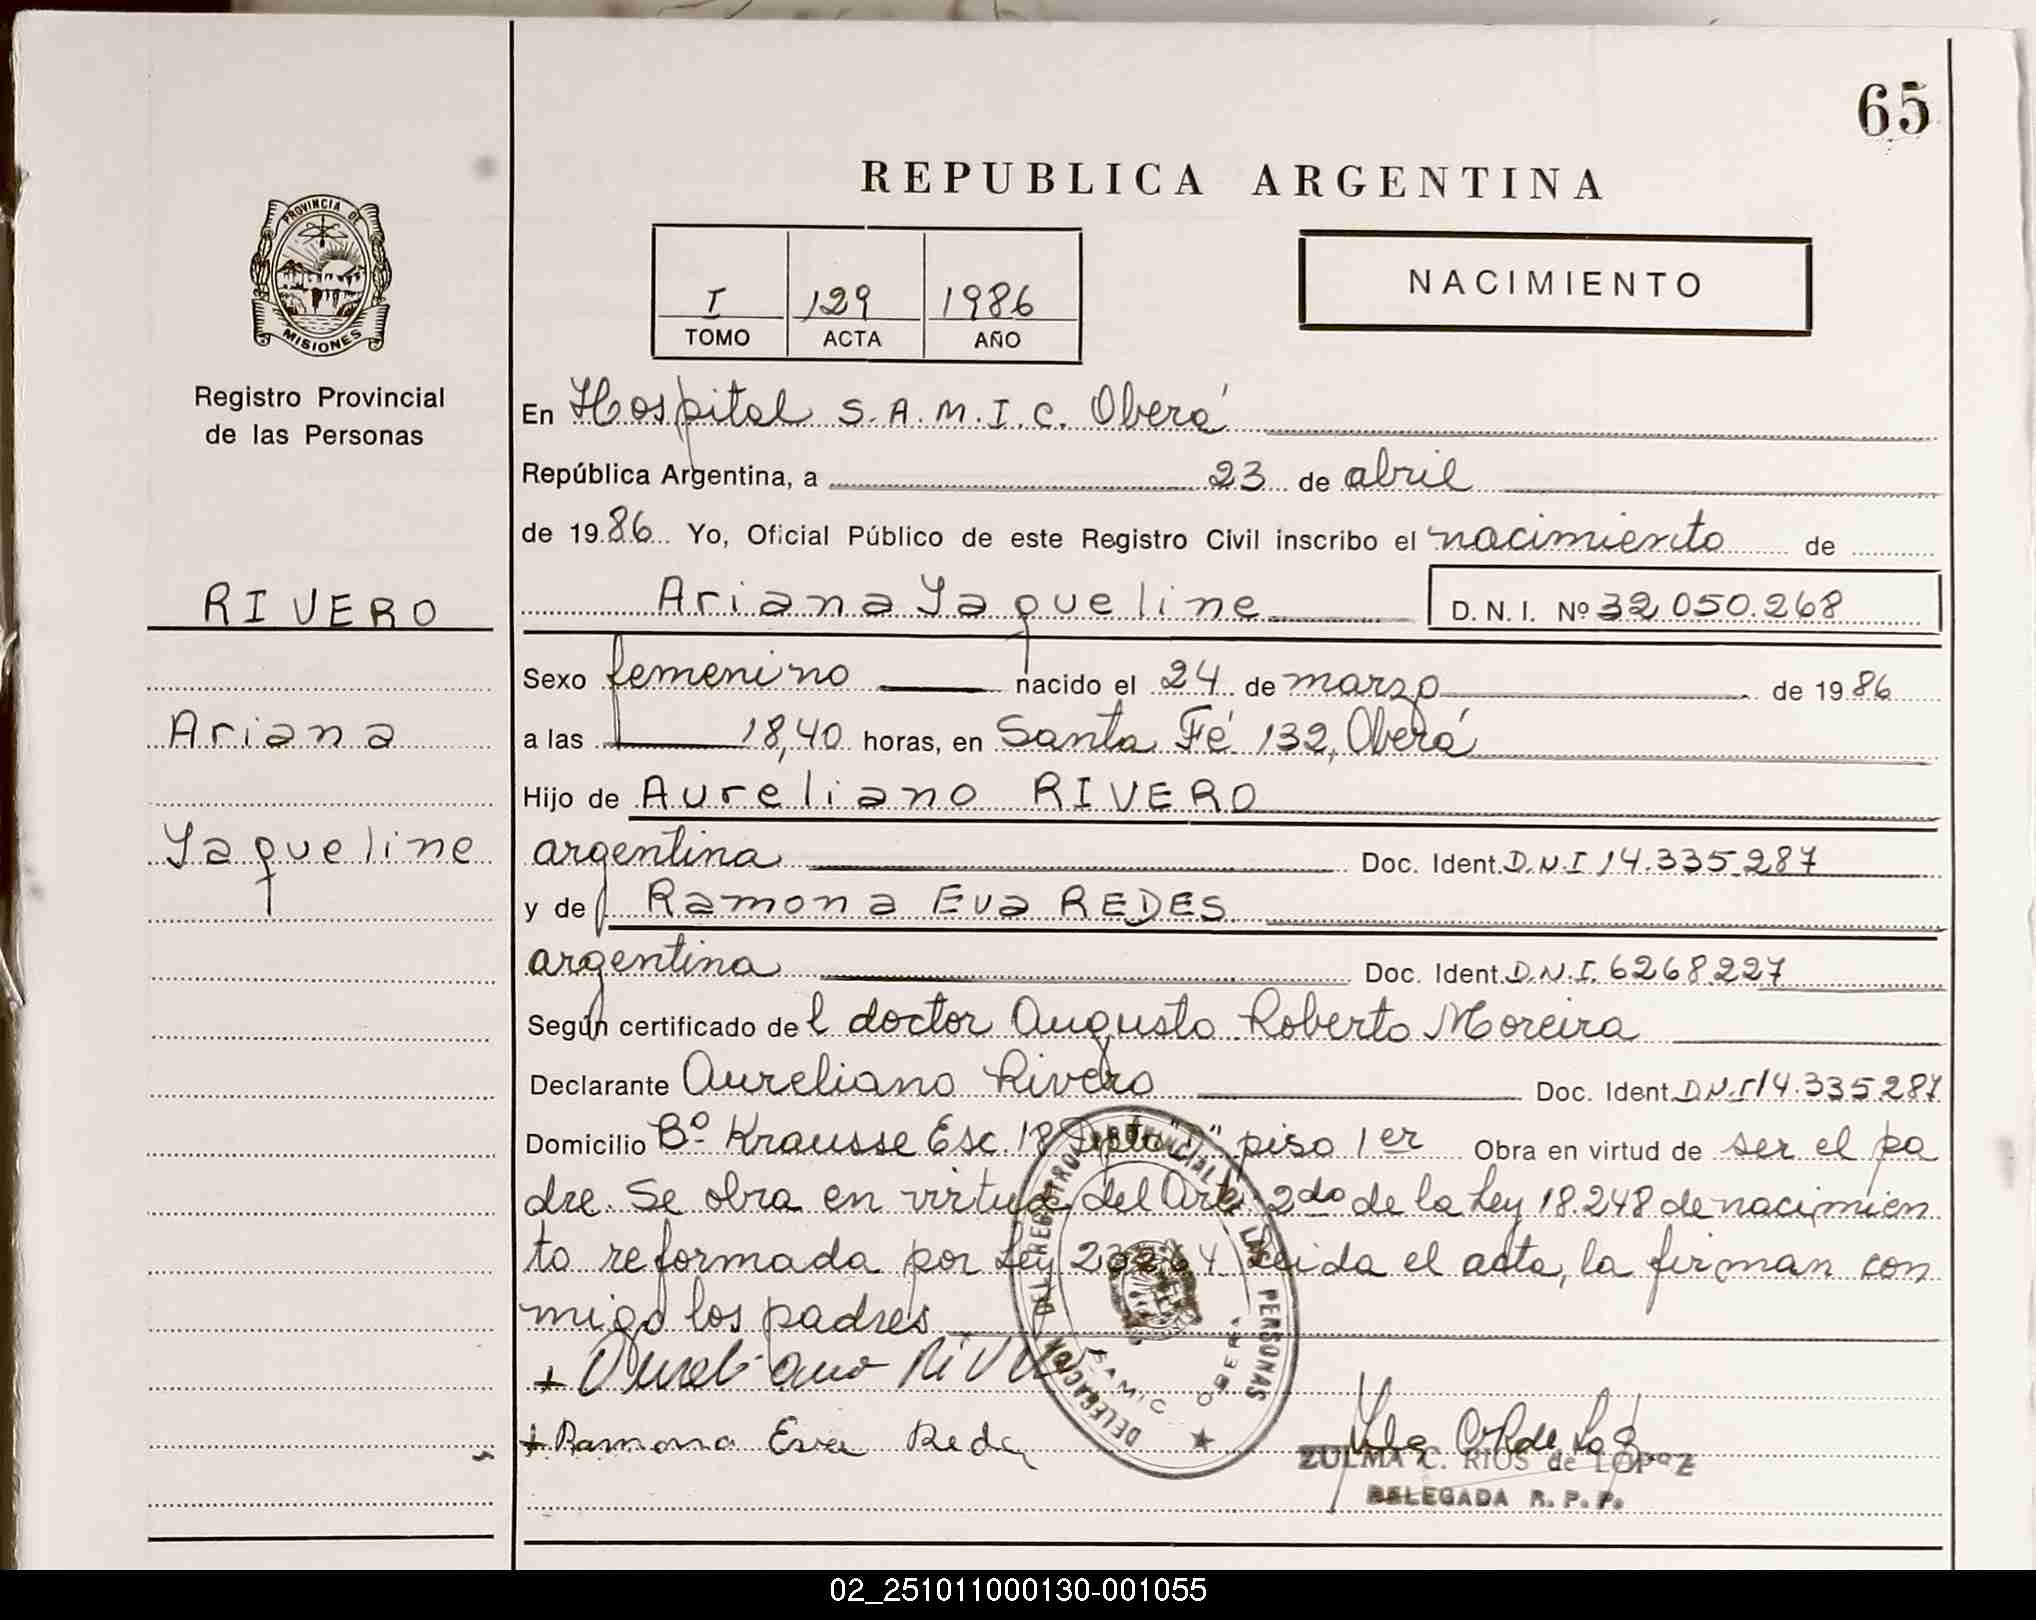 65
REPUBLICA ARGENTINA
PROVINCIA DE
MISIONES
Registro Provincial
de las Personas
I 129 1986
TOMO ACTA AÑO
NACIMIENTO
En Hospital S.A.M.I.C. Oberá
República Argentina, a 23 de abril
de 1986 Yo, Oficial Público de este Registro Civil inscribo el nacimiento de
RIVERO
Ariana Yaqueline D.N.I. Nº 32.050.268
Sexo femenino nacido el 24 de marzo de 1986
Ariana
a las 18,40 horas, en Santa Fé 132, Oberá
Hijo de Aureliano RIVERO
Yaqueline
argentina Doc. Ident. D.N.I 14.335.287
y de Ramona Eva REDES
argentina Doc. Ident. D.N.I. 6268.227
Según certificado del doctor Augusto Roberto Moreira
Declarante Aureliano Rivero Doc. Ident. D.N.I 14.335.287
Domicilio Bº Krausse Esc. 18 Dpto piso 1er Obra en virtud de ser el pa
dre. Se obra en virtud del Art. 2do de la Ley 18.248 de nacimien
to reformada por Ley 23264 Leida el acta, la firman con
migo los padres
+ Aureliano
+ Ramona Eva Rede
DELEGACION DEL REGISTRO PROVINCIAL DE LAS PERSONAS
SAMIC OBERA
ZULMA C. RIOS de LOPEZ
DELEGADA R.P.P.
02_251011000130-001055